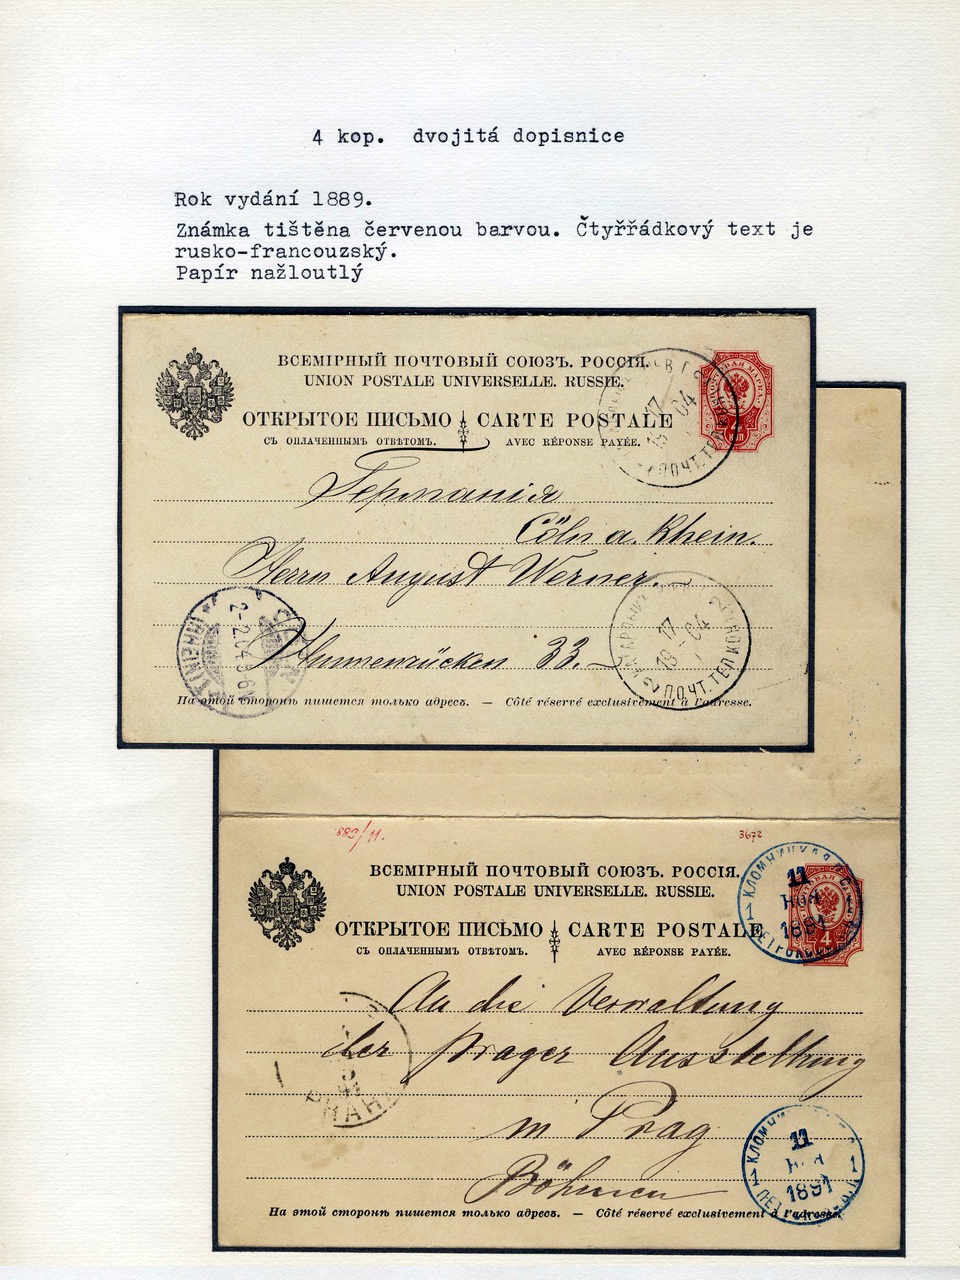 4 kop. dvojitá dopisnice
Rok vydání 1889.
Známka tištěna červenou barvou. Čtyřřádkový text je
rusko-francouzský.
Papír nažloutlý
ВСЕМІРНЫЙ ПОЧТОВЫЙ СОЮЗЪ. РОССІЯ.
UNION POSTALE UNIVERSELLE. RUSSIE.
ОТКРЫТОЕ ПИСЬМО CARTE POSTALE
СЪ ОПЛАЧЕННЫМЪ ОТВѢТОМЪ. AVEC RÉPONSE PAYÉE.
Германія
Cöln a. Rhein.
Herrn August Werner.
33.
17
04
ПОЧТ.ТЕЛ
2-2.04
На этой сторонѣ пишется только адресъ. — Côté réservé exclusivement à l'adresse.
883/11.
3672
ВСЕМІРНЫЙ ПОЧТОВЫЙ СОЮЗЪ. РОССІЯ.
UNION POSTALE UNIVERSELLE. RUSSIE.
ОТКРЫТОЕ ПИСЬМО CARTE POSTALE
СЪ ОПЛАЧЕННЫМЪ ОТВѢТОМЪ. AVEC RÉPONSE PAYÉE.
КЛОМНИЦКАЯ
11
НОЯ
1891
4
An die Verwaltung
der Prager Ausstellung
in Prag
Böhmen
11
1891
На этой сторонѣ пишется только адресъ. — Côté réservé exclusivement à l'adresse.